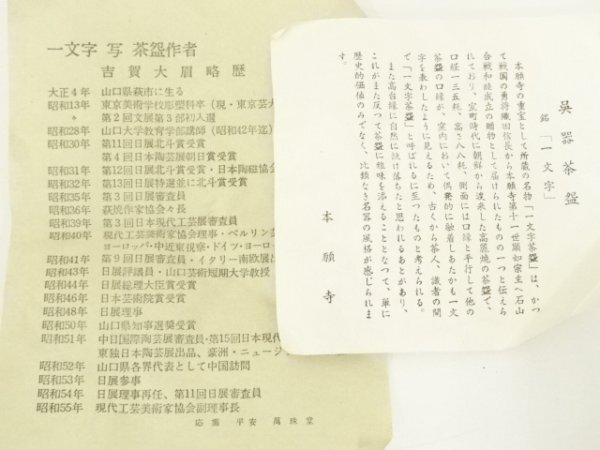 一文字 写 茶盌作者
吉賀大眉略歴
大正4年 山口県萩市に生る
昭和13年 東京美術学校彫塑科卒(現・東京芸大
〃 第2回文展第3部初入選
昭和28年 山口大学教育学部講師(昭和42年迄)
昭和30年 第11回日展北斗賞受賞
第4回日本陶芸展朝日賞受賞
昭和31年 第12回日展北斗賞受賞・日本陶磁協会
昭和32年 第13回日展特選並に北斗賞受賞
昭和35年 第3回日展審査員
昭和36年 萩焼作家協会々長
昭和39年 第3回日本現代工芸展審査員
昭和40年 現代工芸美術家協会理事・ベルリン芸
ヨーロッパ・中近東視察・ドイツ・ヨーロ
昭和41年 第9回日展審査員・イタリー南欧展出
昭和43年 日展評議員・山口芸術短期大学教授
昭和44年 日展総理大臣賞受賞
昭和46年 日本芸術院賞受賞
昭和48年 日展理事
昭和50年 山口県知事選奨受賞
昭和51年 中日国際陶芸展審査員・第15回日本現代
東独日本陶芸展出品、豪洲・ニュージ
昭和52年 山口県各界代表として中国訪問
昭和53年 日展参事
昭和54年 日展理事再任、第11回日展審査員
昭和55年 現代工芸美術家協会副理事長
応需 平安 萬珠堂
呉器茶盌
銘「一文字」
本願寺の重宝として所蔵の名物「一文字茶盌」は、かつ
て戦国の勇将織田信長から本願寺第十一世顕如宗主へ石山
合戦和睦成立の贈物として届けられたものの一つと伝えら
れており、室町時代に朝鮮から渡来した高麗焼の茶盌で、
口径一三五粍、高さ八八粍、側面には口縁と平行して他の
茶盌の口縁が、窯内において偶発的に融着しあたかも一文
字を表わしたように見えるため、古くから茶人、識者の間
で「一文字茶盌」と呼ばれるに至ったものと考えられる。
また高台縁に自然に欠け落ちたと思われるあとがあり、
これがまた反つて茶盌に趣味を添えることとなつて、単に
歴史的価値のみでなく、比類なき名器の風格が感じられま
す。
本願寺